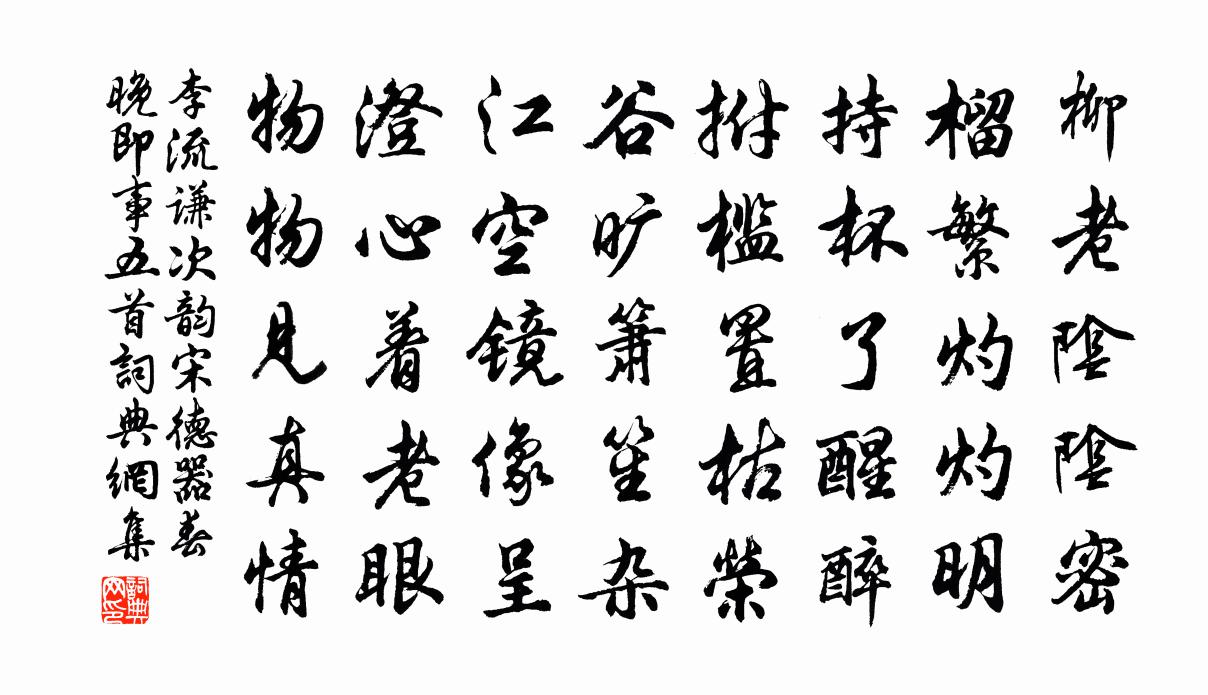 柳老陰陰密
榴繁灼灼明
持杯了醒醉
拊檻置枯榮
谷旷箫笙杂
江空镜像呈
澄心着老眼
物物見真情
李流谦次韵宋德器春
晚即事五首詞典網集
詞典
网印